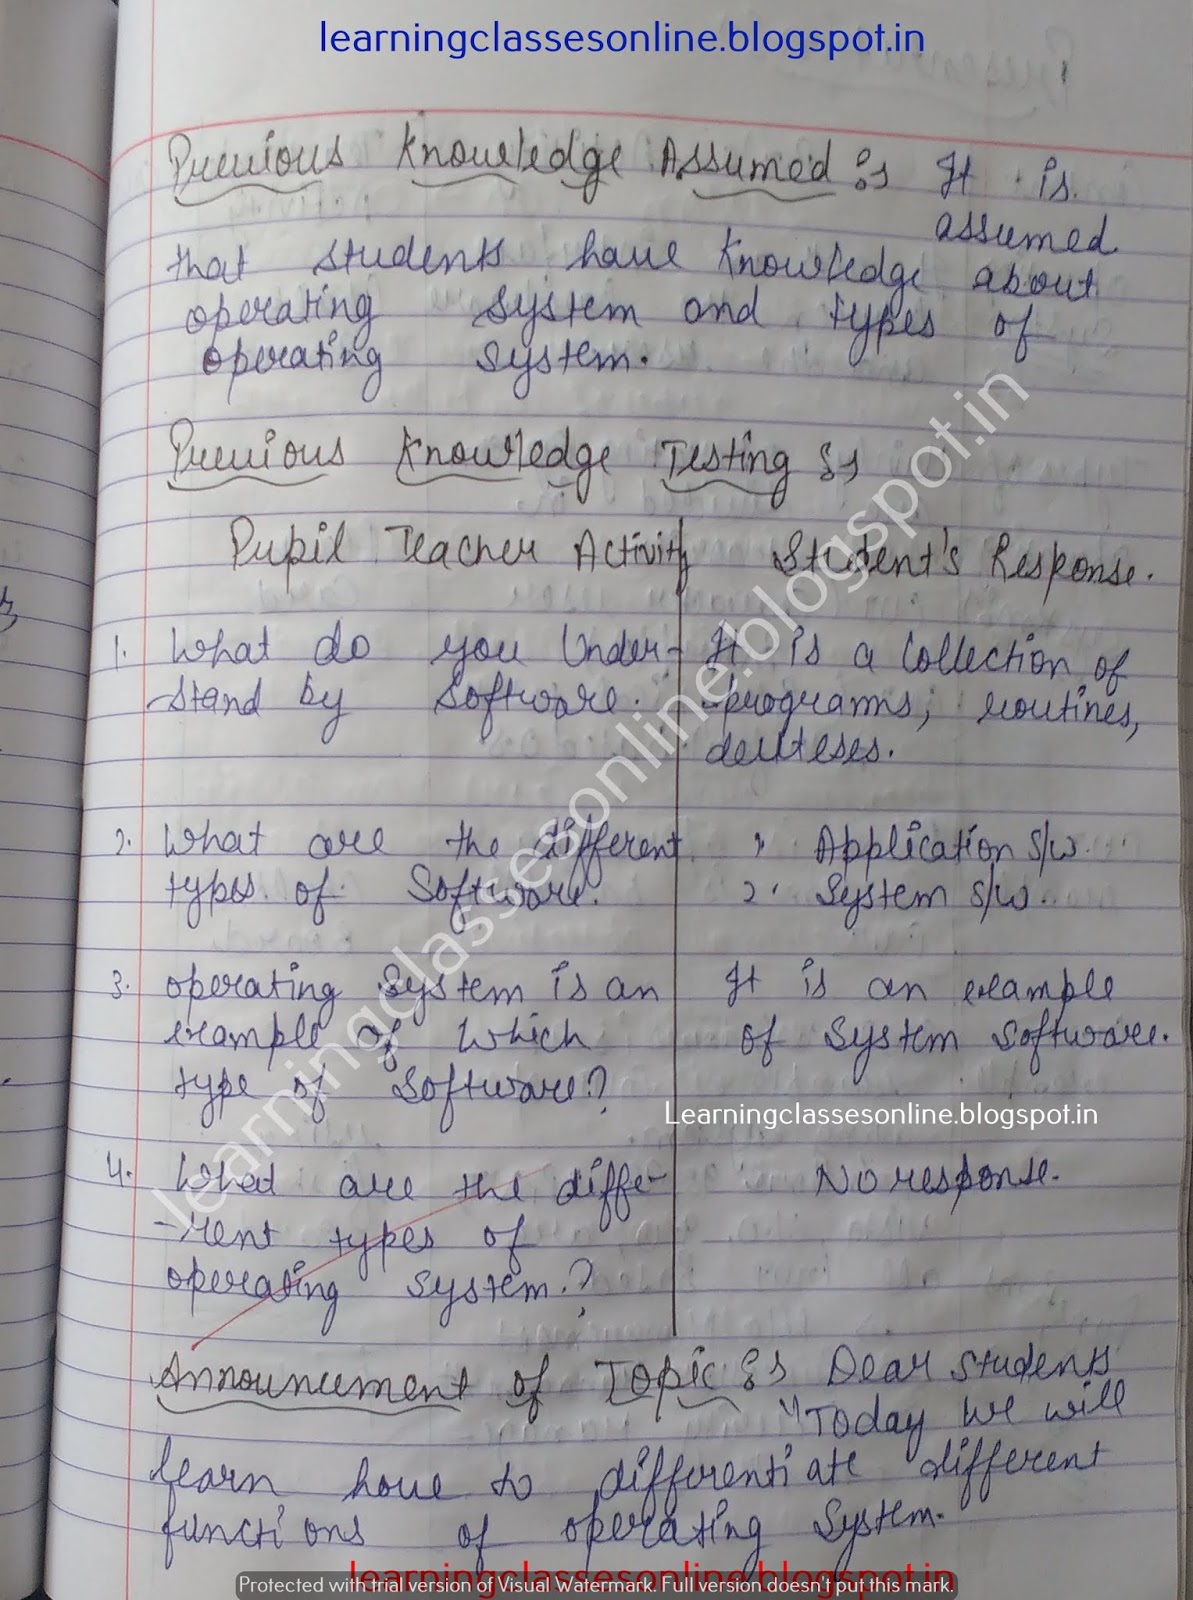 learningclassesonline.blogspot.in
Previous Knowledge Assumed :- It is
assumed
that students have knowledge about
operating system and types of
operating system.
Previous Knowledge Testing :-
Pupil Teacher Activity Student's Response.
1. What do you Under- It is a Collection of
-stand by Software. -programs, routines,
deuteses.
2. What are the different 1. Application s/w.
types of Software. 2. System s/w.
3. operating System is an It is an example
example of Which of System Software.
type of Software?
Learningclassesonline.blogspot.in
4. What are the diffe- No response.
-rent types of
operating system.?
Announcement of Topic :- Dear Students
"Today we will
learn houe to differentiate different
functions of operating System.
learningclassesonline.blogspot.in
learningclassesonline.blogspot.in
Protected with trial version of Visual Watermark. Full version doesn't put this mark.